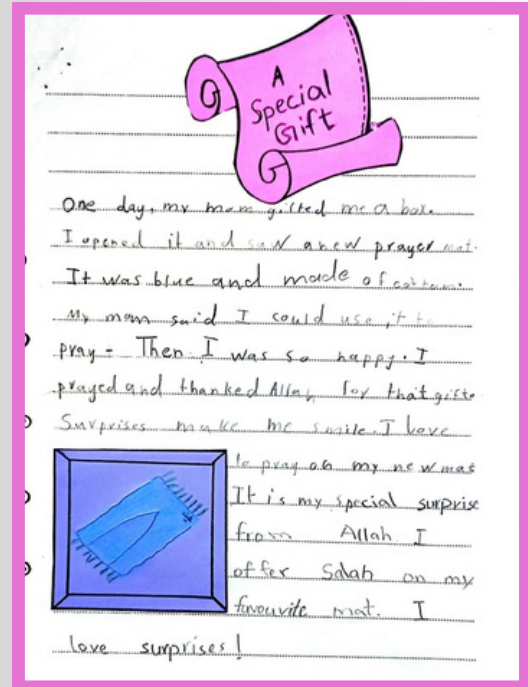 A
Special
Gift
One day, my mom gifted me a box.
I opened it and saw a new prayer mat.
It was blue and made of cottom.
My mom said I could use it to
pray - Then I was so happy. I
prayed and thanked Allah for that gift.
Surprises make me smile. I love
to pray on my new mat
It is my special surprise
from Allah I
offer Salah on my
favourite mat. I
love surprises!